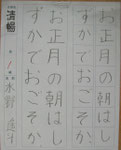 お正月の朝はし
ずかでおごそか
お正月の朝はし
ずかでおごそか
清書
水野